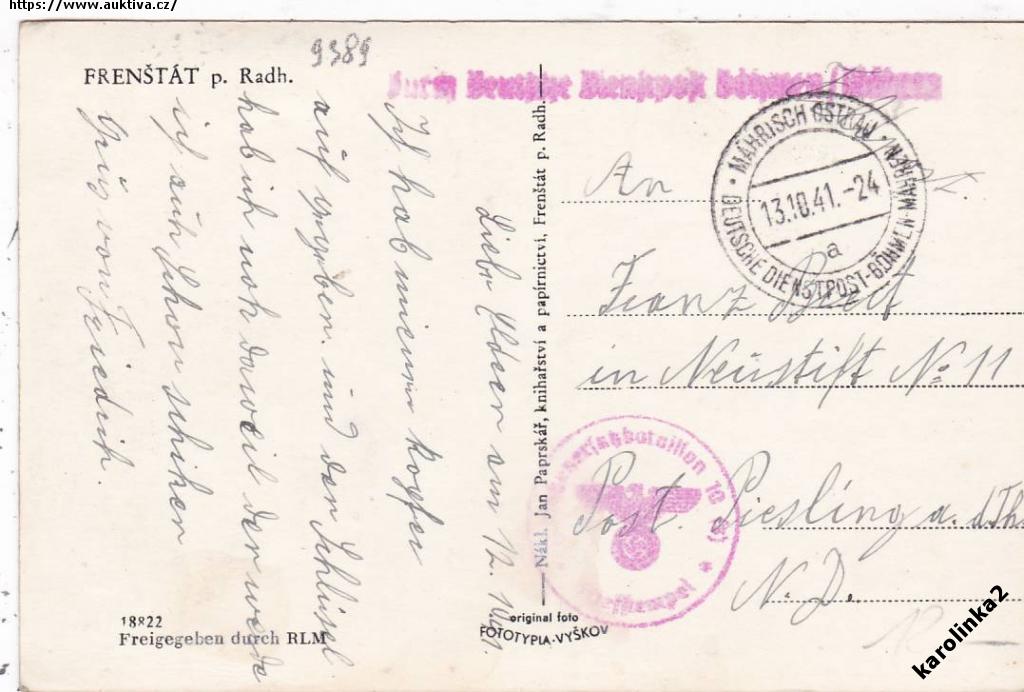 https://www.auktiva.cz/
FRENŠTÁT p. Radh.
9389
Durch Deutsche Dienstpost Böhmen / Mähren
MÄHRISCH OSTRAU
13.10.41.-24
a
DEUTSCHE DIENSTPOST-BÖHMEN-MÄHREN
An
Franz
in Neustift No 11
Post. Piesling a. d. Th
N. D.
Liebe am 12.
Ich hab meinen
auf und den Schlüssel
hab ich noch daweil den werde
ich auch schon schiken
Grüs von Friedrich.
Nákl. Jan Paprskář, knihařství a papírnictví, Frenštát p. Radh.
18822
Freigegeben durch RLM
original foto
FOTOTYPIA-VYŠKOV
karolinka2